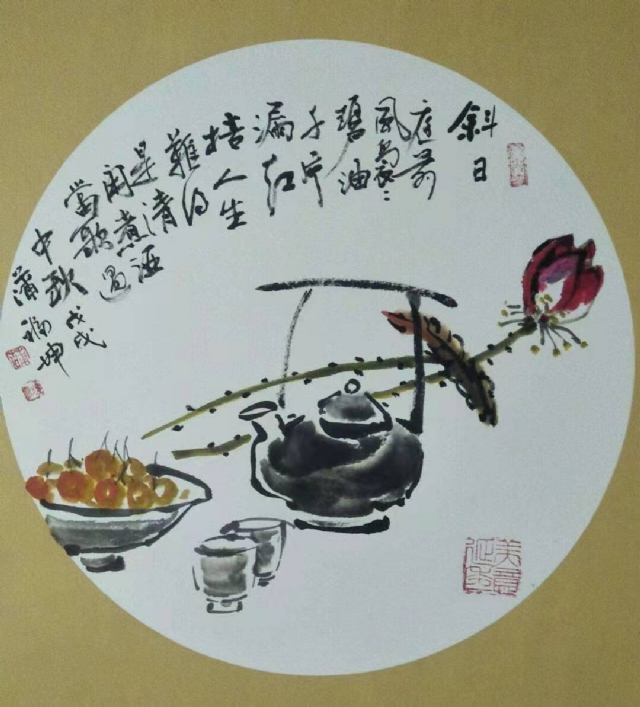 斜日
庭前
風裊〻
碧油
千片
漏紅
桔人生
難得
是清
閑煮酒
當歌過
中秋戊戌
蒲福坤
美意延年